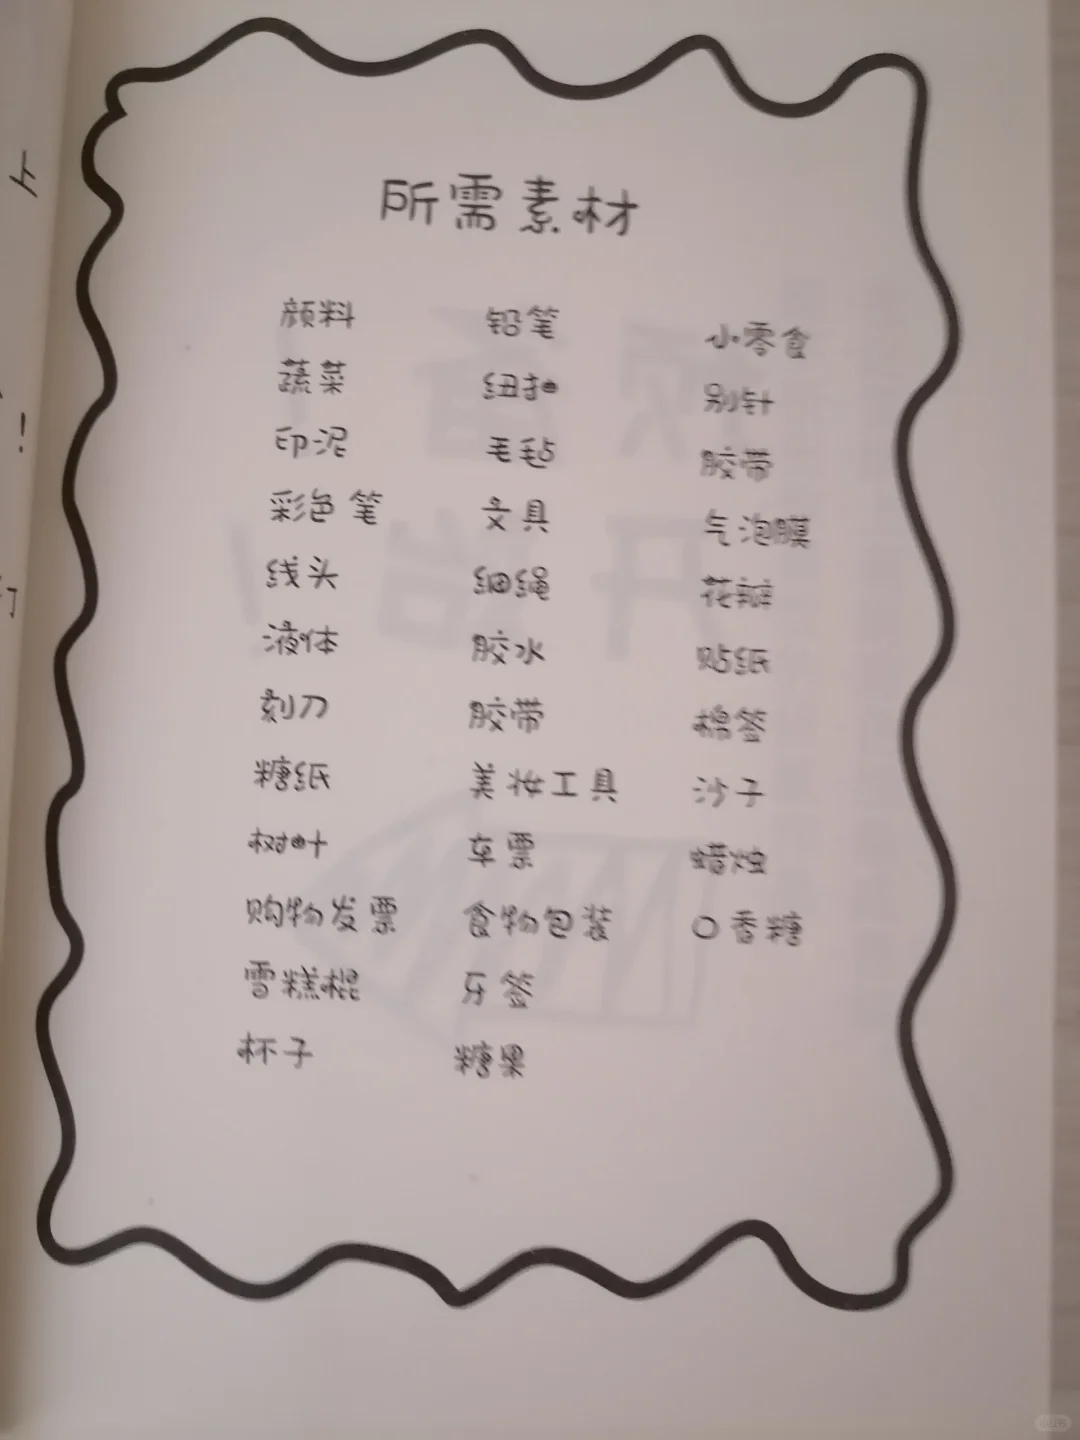 所需素材
颜料
蔬菜
印泥
彩色笔
线头
液体
刻刀
糖纸
树叶
购物发票
雪糕棍
杯子
铅笔
纽扣
毛毡
文具
细绳
胶水
胶带
美妆工具
车票
食物包装
牙签
糖果
小零食
别针
胶带
气泡膜
花瓣
贴纸
棉签
沙子
蜡烛
口香糖
上
!
小红书